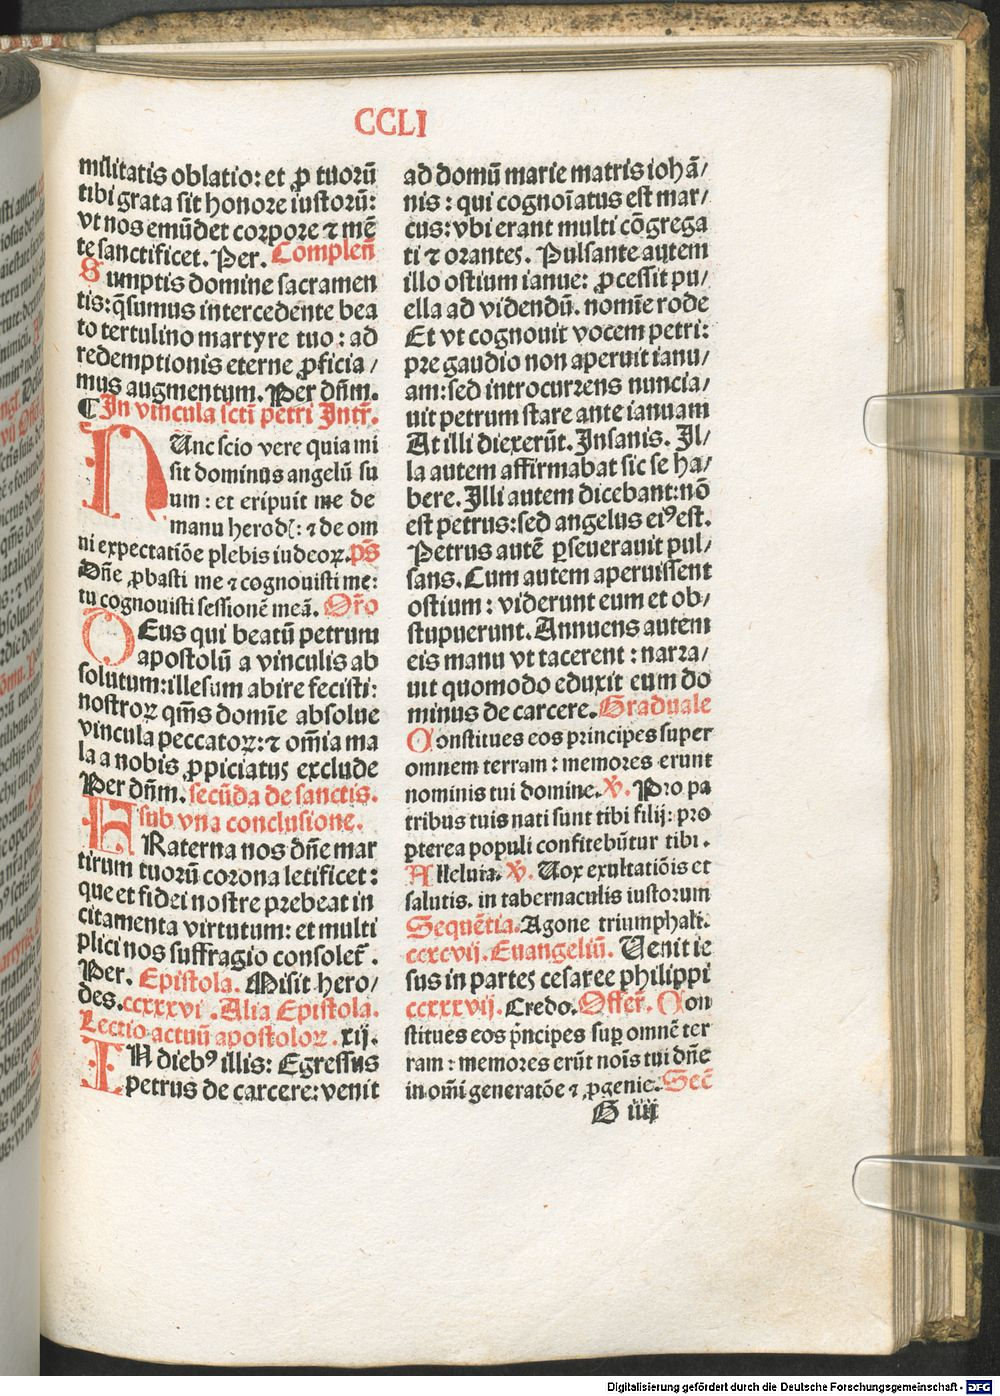 CCLI
militatis oblatio: et ꝓ tuorū
tibi grata sit honore iustorū:
vt nos emūdet corpore ⁊ mē
te sanctificet. Per. Compleñ
Sumptis domine sacramen
tis: q̄sumus intercedente bea
to tertulino martyre tuo: ad
redemptionis eterne ꝓficia/
mus augmentum. Per dn̄m.
¶ In vincula scti petri Intr̄.
NUnc scio vere quia mi
sit dominus angelū su
um: et eripuit me de
manu herod[: ⁊ de om
ni expectatiōe plebis iudeoꝝ. ps̄
Dn̄e ꝓbasti me ⁊ cognouisti me:
tu cognouisti sessionē meā. Or̄o
DEus qui beatū petrum
apostolū a vinculis ab
solutum: illesum abire fecisti:
nostroꝝ qm̄s domīe absolue
vincula peccatoꝝ: ⁊ om̄ia ma
la a nobis ꝓpiciatus exclude
Per dn̄m. secūda de sanctis.
sub vna conclusione.
FRaterna nos dn̄e mar
tirum tuorū corona letificet:
que et fidei nostre prebeat in
citamenta virtutum: et multi
plici nos suffragio consolet̄.
Per. Epistola. Misit hero/
des. ccxxxvi. Alia Epistola.
Lectio actuū apostoloꝝ. xij.
IN diebꝰ illis: Egressus
petrus de carcere: venit
ad domū marie matris iohā/
nis: qui cognoīatus est mar/
cus: vbi erant multi cōgrega
ti ⁊ orantes. Pulsante autem
illo ostium ianue: ꝓcessit pu/
ella ad videndū. nomīe rode
Et vt cognouit vocem petri:
pre gaudio non aperuit ianu/
am: sed introcurrens nuncia/
uit petrum stare ante ianuam
At illi dixerūt. Insanis. Il/
la autem affirmabat sic se ha/
bere. Illi autem dicebant: nō
est petrus: sed angelus eiꝰ est.
Petrus autē ꝑseuerauit pul/
sans. Cum autem aperuissent
ostium: viderunt eum et ob/
stupuerunt. Annuens autem
eis manu vt tacerent: narra/
uit quomodo eduxit eum do
minus de carcere. Graduale
Constitues eos principes super
omnem terram: memores erunt
nominis tui domine. ℣. Pro pa
tribus tuis nati sunt tibi filij: pro
pterea populi confitebūtur tibi.
Alleluia. ℣. Uox exultatiōis et
salutis. in tabernaculis iustorum
Sequētia. Agone triumphali.
ccxcvij. Euangeliū. Uenit ie
sus in partes cesaree philippi
ccxxxvij. Credo. Offer̄. Con
stitues eos pn̄cipes suꝑ omnē ter
ram: memores erūt nois̄ tui dn̄e
in om̄i generatōe ⁊ ꝓgenie. Sec̄
G iiij
Digitalisierung gefördert durch die Deutsche Forschungsgemeinschaft - DFG